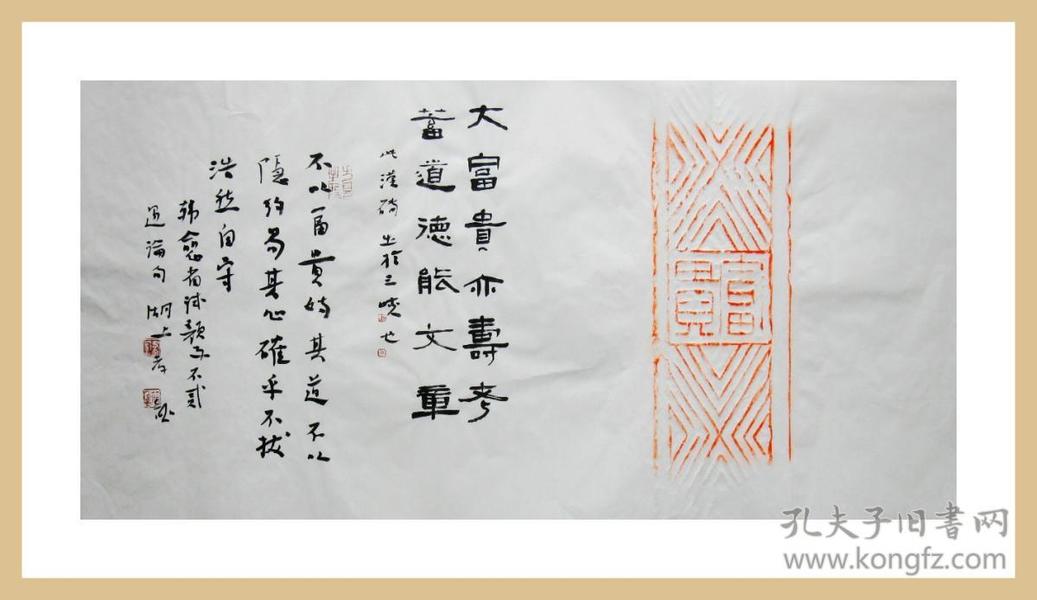 富貴
大富貴亦壽考
蓄道德能文章
此漢磚出於三峽也
不以富貴妨其道不以
隱約易其心確乎不拔
浩然自守
韓愈省試顏子不貳
過論句 湖上
孔夫子旧書网
www.kongfz.com